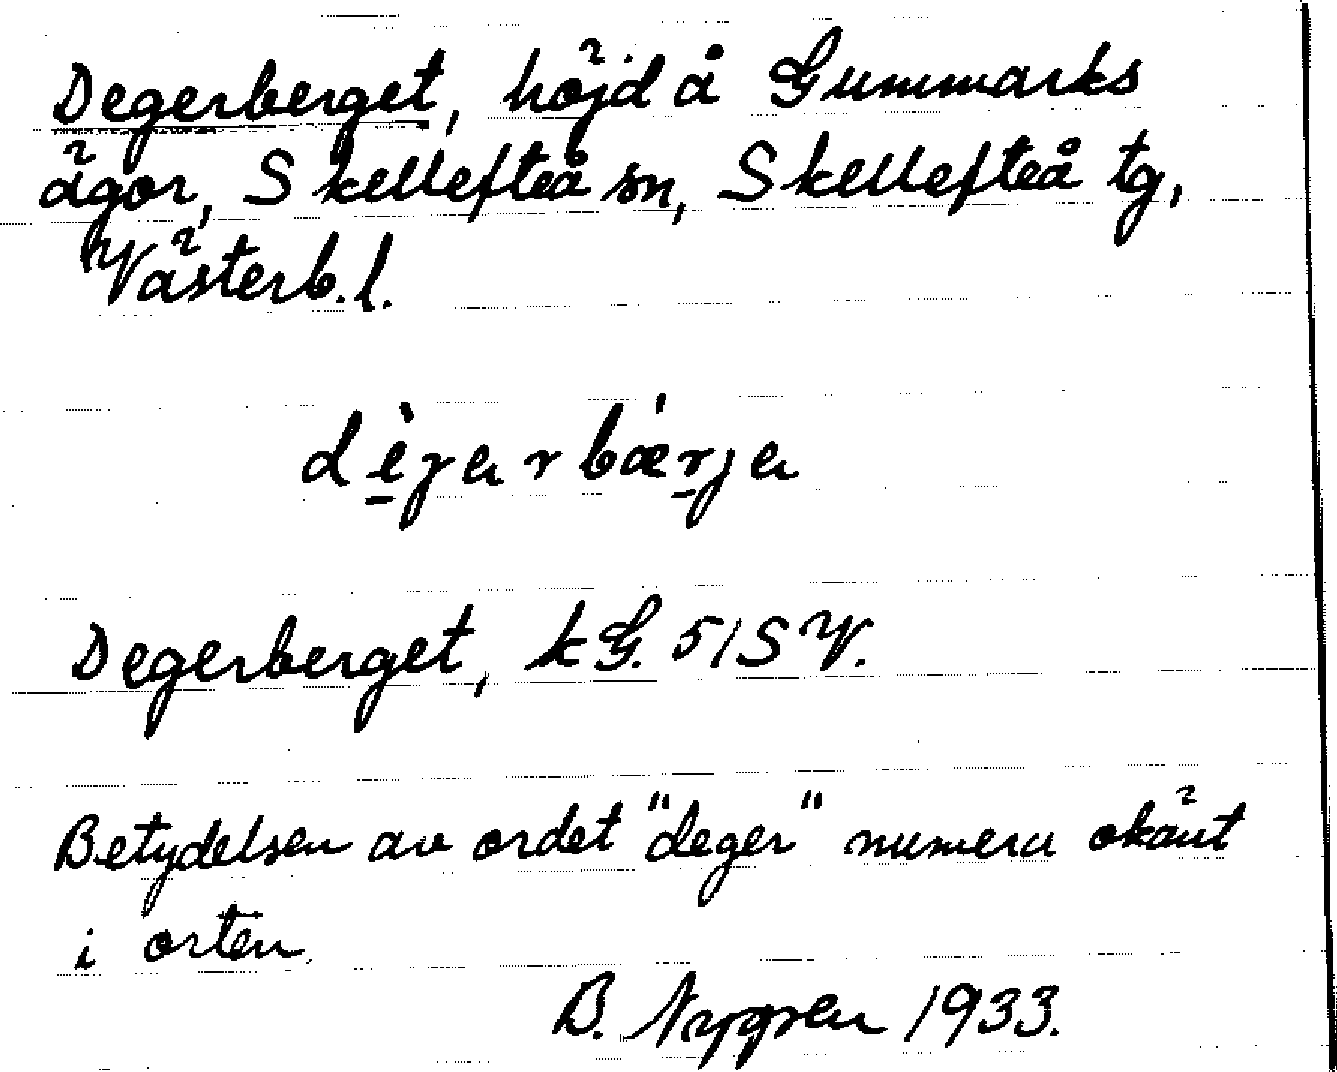 Degerberget, höjd å Gummarks
ägor, Skellefteå sn, Skellefteå tg,
Västerb.l.
Degerberget, kG. 51SV.
Betydelsen av ordet "deger" numera okänt
i orten.
B. Nygren 1933.